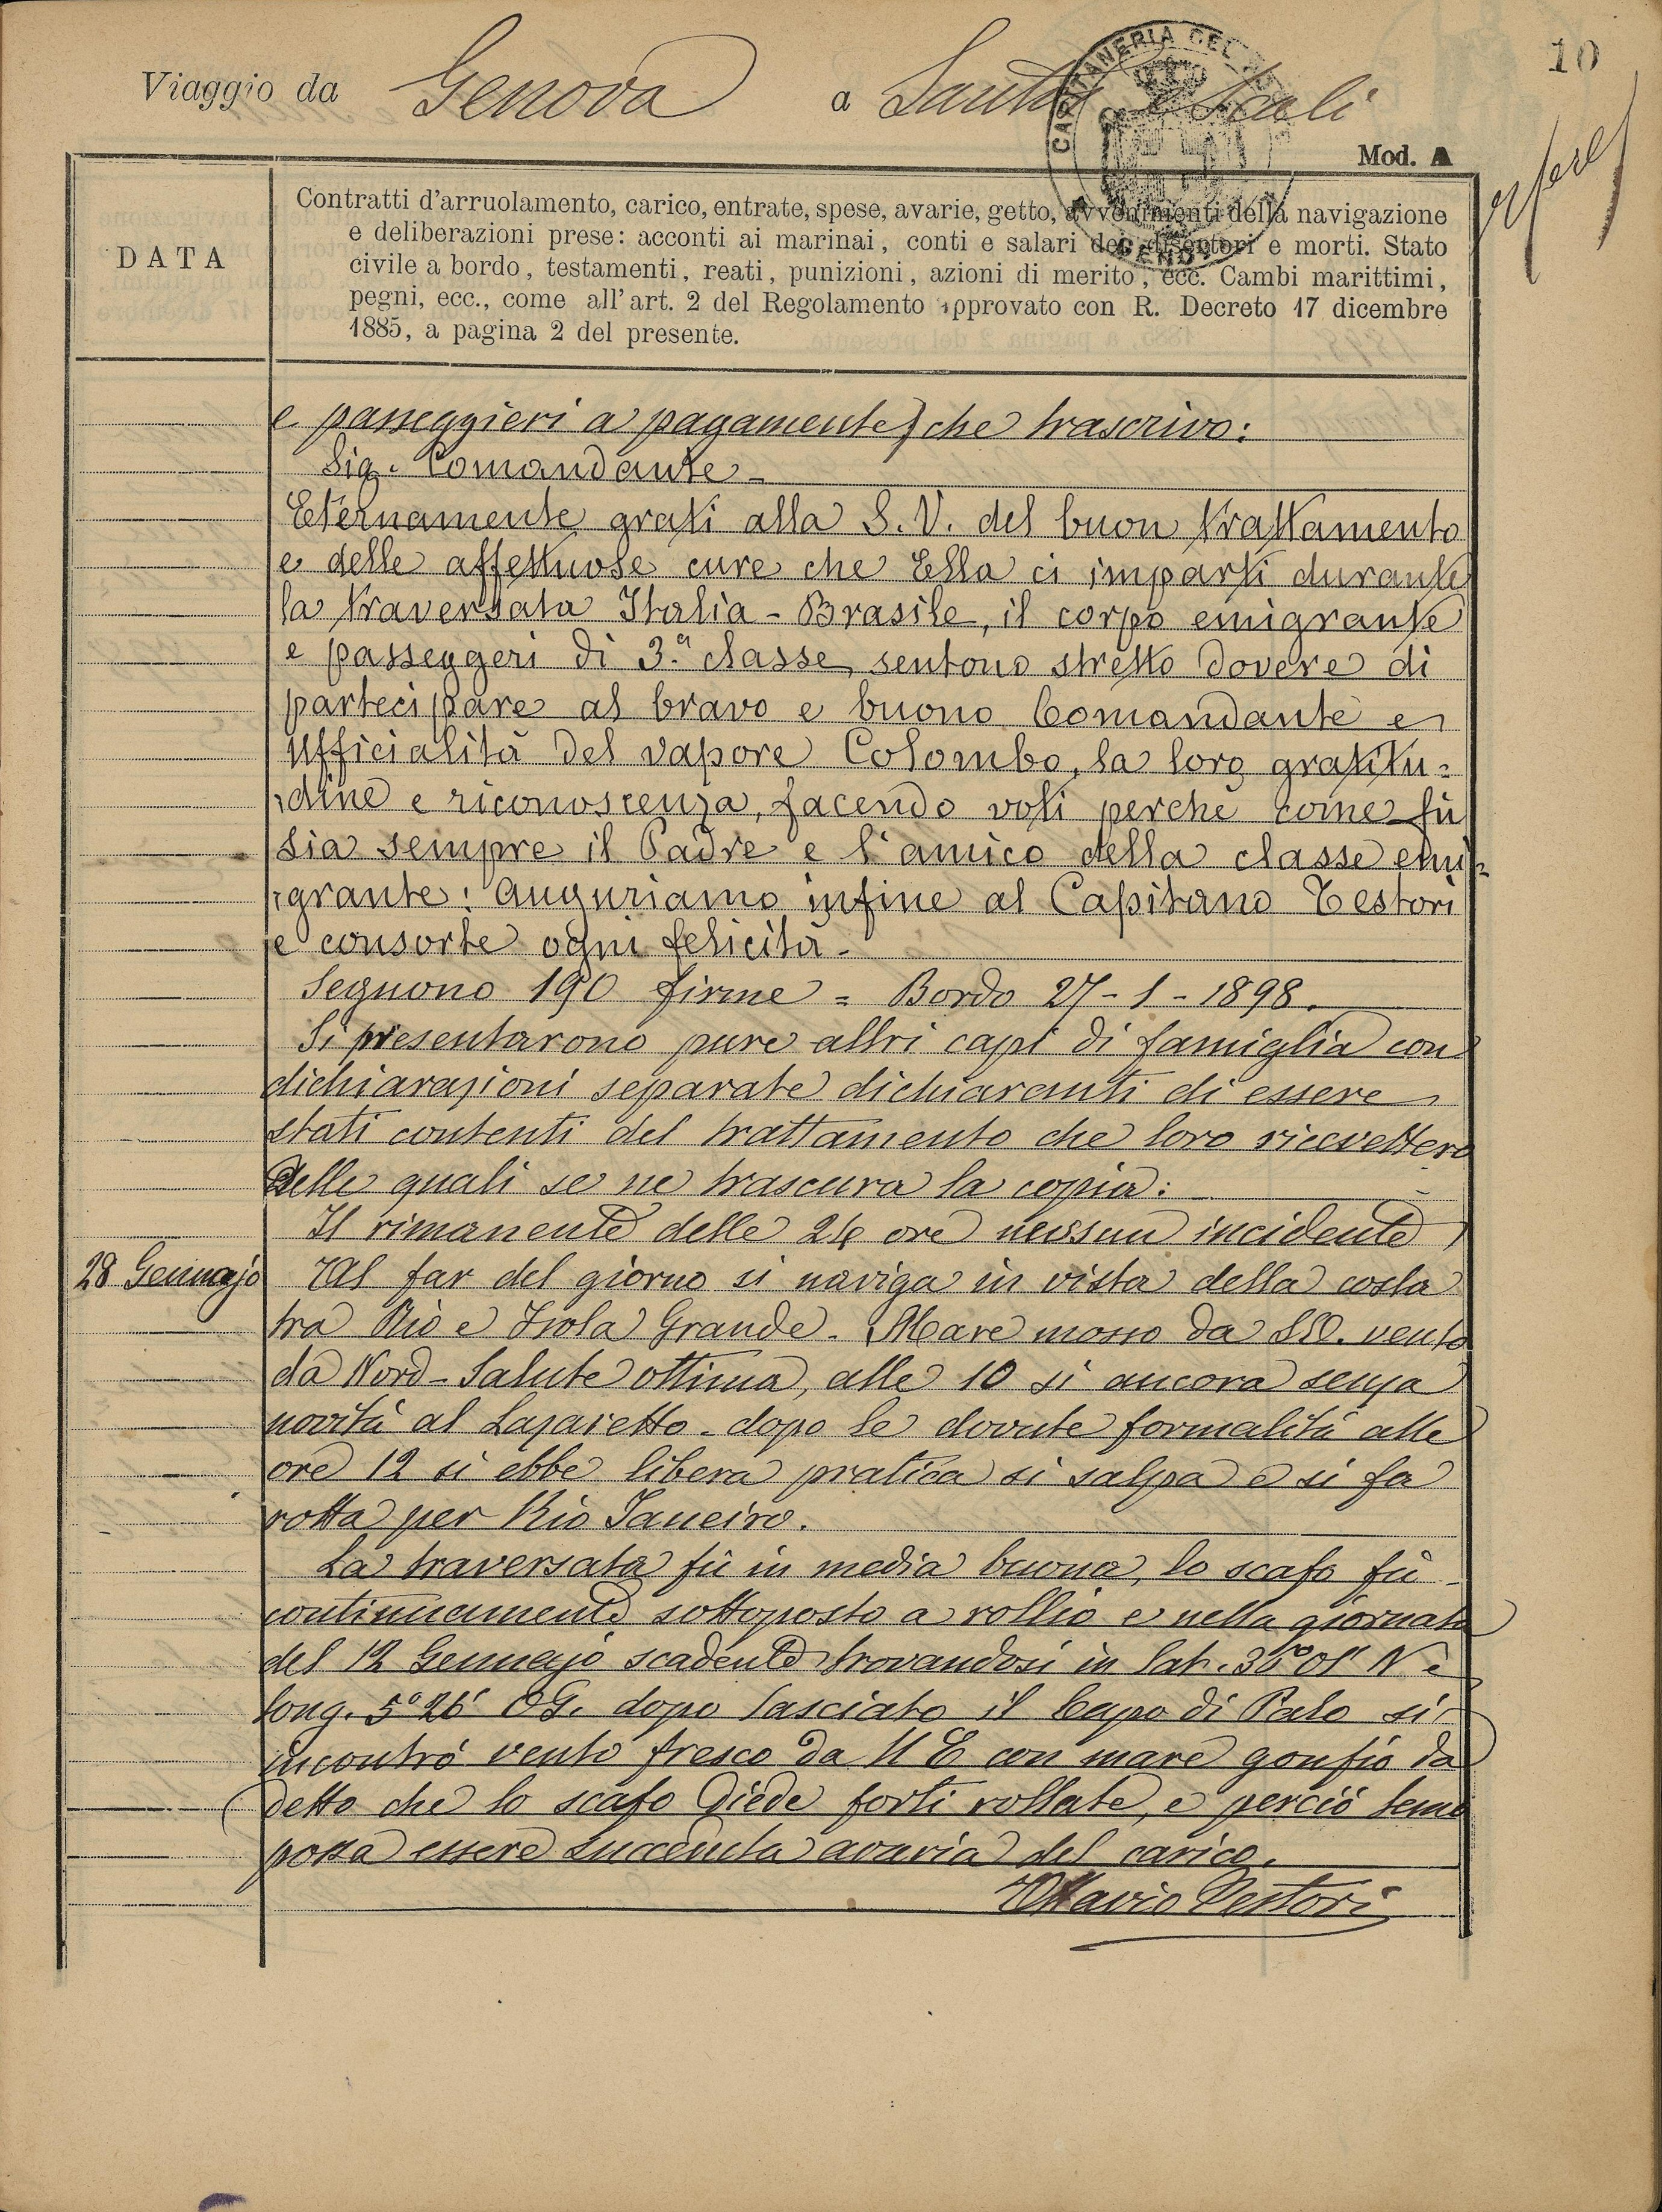 10
Viaggio da Genova a Santos e Scali
Mod. A
CAPITANERIA DEL
DATA
Contratti d'arruolamento, carico, entrate, spese, avarie, getto, avvenimenti della navigazione
e deliberazioni prese: acconti ai marinai, conti e salari dei disertori e morti. Stato
civile a bordo, testamenti, reati, punizioni, azioni di merito, ecc. Cambi marittimi,
pegni, ecc., come all'art. 2 del Regolamento approvato con R. Decreto 17 dicembre
1885, a pagina 2 del presente.
e passeggieri a pagamente) che trascrivo:
Sig. Comandante -
Eternamente grati alla S.V. del buon trattamento
e delle affettuose cure che Ella ci imparti durante
la traversata Italia - Brasile, il corpo emigrante
e passeggeri di 3.a classe, sentono stretto dovere di
partecipare al bravo e buono Comandante e
Ufficialità del vapore Colombo, la loro gratitu=
dine e riconoscenza, facendo voti perchè come fù
sia sempre il Padre e l'amico della classe emi=
grante! Auguriamo infine al Capitano Testori
e consorte ogni felicità -
Seguono 190 firme = Bordo 27-1-1898.
Si presentarono pure altri capi di famiglia con
dichiarazioni separate dichiaranti di essere
stati contenti del trattamento che loro ricevettero
delle quali se ne trascura la copia:
Il rimanente delle 24 ore nessun incidente
28 Gennajo Al far del giorno si naviga in vista della costa
tra Rio e Isola Grande. Mare mosso da SSO. vento
da Nord - Salute ottima, alle 10 si ancora senza
novità al Lazaretto - dopo le dovute formalità alle
ore 12 si ebbe libera pratica si salpa e si fa
rotta per Rio Janeiro.
La traversata fù in media buona, lo scafo fù
continuamente sottoposto a rollio e nella giornata
del 12 Gennajo scadente trovandosi in lat. 36°01' N e
long. 5°26' OG. dopo lasciato il Capo di Palo si
incontrò vento fresco da NE con mare gonfio da
detto che lo scafo diede forti rollate, e perciò temo
possa essere succeduta avaria del carico.
Ottavio Testori